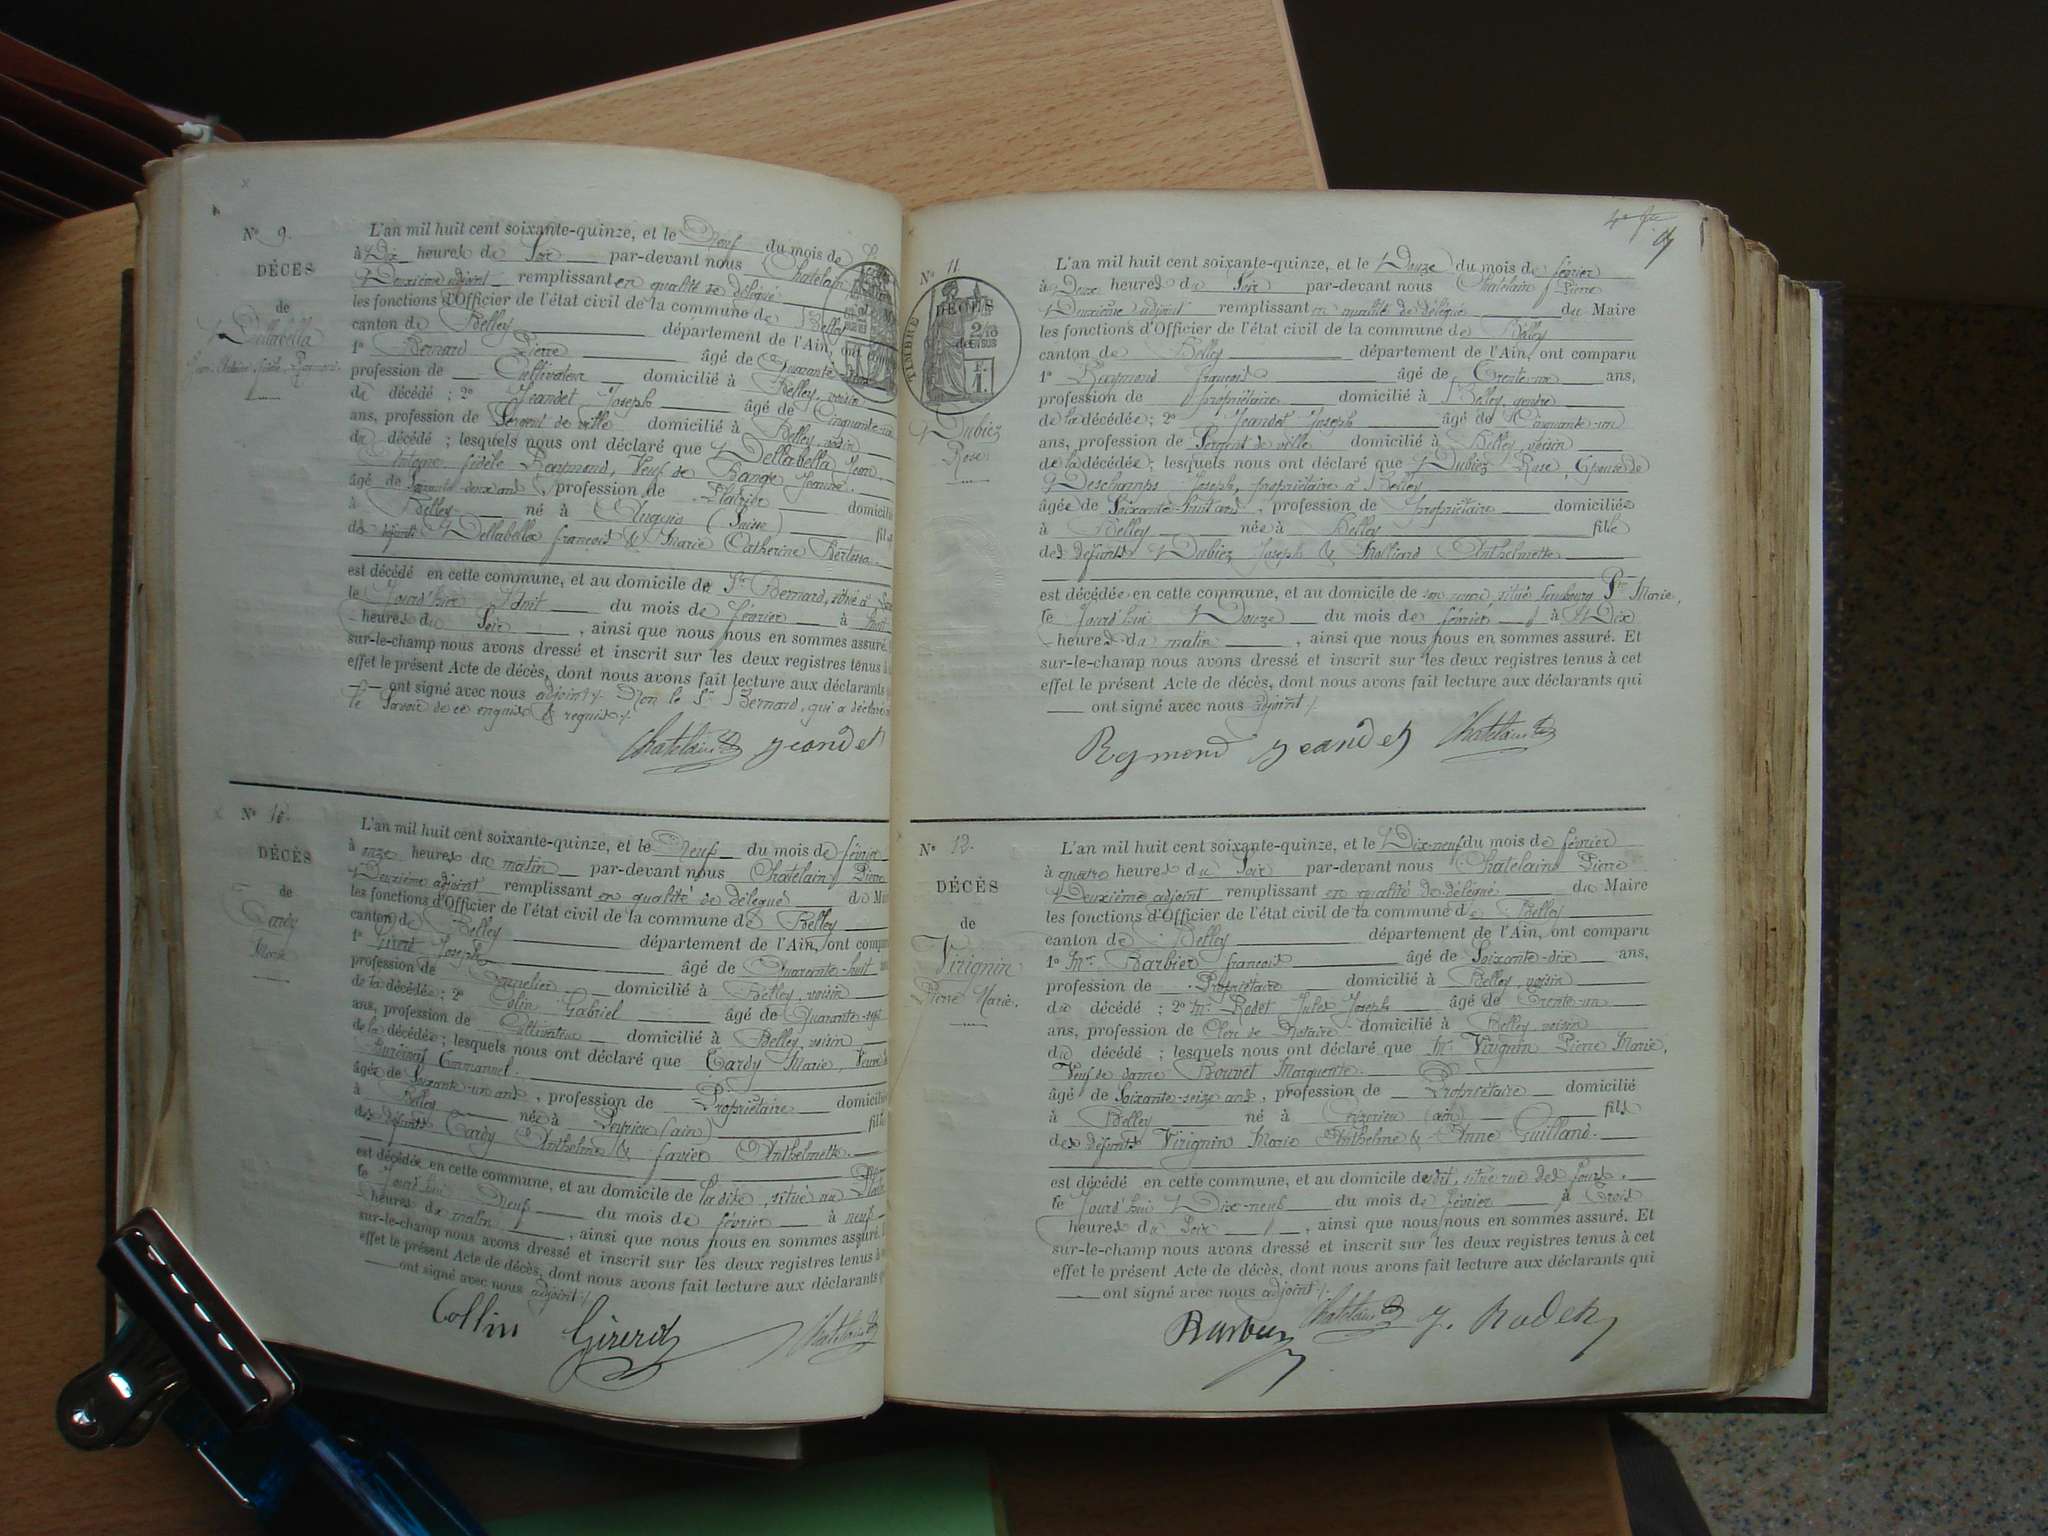 Nº 9.
DÉCÈS
de
Dellabella
L'an mil huit cent soixante-quinze, et le Neuf du mois de
à Dix heures du Soir par-devant nous Chatelain
Deuxième adjoint remplissant en qualité de délégué
les fonctions d'Officier de l'état civil de la commune de Belley
canton de Belley département de l'Ain, ont
1º Bernard Pierre âgé de Quarante
profession de Cultivateur domicilié à Belley, voisin
du décédé ; 2º Jeandet Joseph âgé de Cinquante-un
ans, profession de Sergent de ville domicilié à Belley, voisin
du décédé ; lesquels nous ont déclaré que Dellabella Jean
Antoine fidèle Raymond, Veuf de Range Jeanne.
âgé de Soixante-deux ans, profession de Platrier domicilié
à Belley né à (Suisse) fils
des défunts Dellabella françois & Marie Catherine
est décédé en cette commune, et au domicile de Sr Bernard, situé à
le Jourd'hier Huit du mois de février à huit
heures du Soir, ainsi que nous nous en sommes assuré.
sur-le-champ nous avons dressé et inscrit sur les deux registres tenus à
effet le présent Acte de décès, dont nous avons fait lecture aux déclarants
ont signé avec nous adjoint. Non le Sr Bernard, qui a déclaré
le Savoir de ce enquis & requis.
Chatelain Jeandet
Nº 10.
DÉCÈS
de
Tardy
Marie
L'an mil huit cent soixante-quinze, et le Neuf du mois de février
à onze heures du matin par-devant nous Chatelain Pierre
Deuxième adjoint remplissant en qualité de délégué du
les fonctions d'Officier de l'état civil de la commune de Belley
canton de Belley département de l'Ain, ont
1º Joseph âgé de Quarante-huit
profession de domicilié à Belley, voisin
de la décédée ; 2º Colin Gabriel âgé de Quarante-sept
ans, profession de Cultivateur domicilié à Belley, voisin
de la décédée ; lesquels nous ont déclaré que Tardy Marie, Veuve de
Emmanuel.
âgée de Soixante-un ans, profession de Propriétaire domiciliée
à Belley née à Peyrieu (ain) fille
des défunts Tardy Anthelme & favier Anthelmette.
est décédée en cette commune, et au domicile de la dite, situé
le Jourd'hui Neuf du mois de février à neuf
heures du matin, ainsi que nous nous en sommes assuré.
sur-le-champ nous avons dressé et inscrit sur les deux registres tenus à
effet le présent Acte de décès, dont nous avons fait lecture aux déclarants
ont signé avec nous adjoint.
Collin Girerd Chatelain
Nº 11.
DÉCÈS
TIMBRE
2/10
EN SUS
Dubiez
Rose
L'an mil huit cent soixante-quinze, et le Douze du mois de février
à Deux heures du Soir par-devant nous Chatelain Pierre
Deuxième adjoint remplissant en qualité de délégué du Maire
les fonctions d'Officier de l'état civil de la commune de Belley
canton de Belley département de l'Ain, ont comparu
1º Raymond françois âgé de Trente-un ans,
profession de propriétaire domicilié à Belley, gendre
de la décédée ; 2º Jeandet Joseph âgé de Cinquante-un
ans, profession de Sergent de ville domicilié à Belley, voisin
de la décédée ; lesquels nous ont déclaré que Dubiez Rose, Epouse de
Deschamps Joseph, propriétaire à Belley
âgée de Soixante-huit ans, profession de propriétaire domiciliée
à Belley née à Belley fille
des défunts Dubiez Joseph & Anthelmette
est décédée en cette commune, et au domicile de son mari, situé faubourg Marie,
le Jourd'hui Douze du mois de février à Dix
heures du matin, ainsi que nous nous en sommes assuré. Et
sur-le-champ nous avons dressé et inscrit sur les deux registres tenus à cet
effet le présent Acte de décès, dont nous avons fait lecture aux déclarants qui
ont signé avec nous adjoint.
Reymond Jeandet Chatelain
Nº 12.
DÉCÈS
de
Virignin
Pierre Marie.
L'an mil huit cent soixante-quinze, et le Dix-neuf du mois de février
à quatre heures du Soir par-devant nous Chatelain Pierre
Deuxième adjoint remplissant en qualité de délégué du Maire
les fonctions d'Officier de l'état civil de la commune de Belley
canton de Belley département de l'Ain, ont comparu
1º Mr Barbier françois âgé de Soixante-dix ans,
profession de Propriétaire domicilié à Belley, voisin
du décédé ; 2º Mr Rodet Jules Joseph âgé de Trente-un
ans, profession de Clerc de Notaire domicilié à Belley, voisin
du décédé ; lesquels nous ont déclaré que Mr Virignin Pierre Marie,
Veuf de dame Bouvet Marguerite.
âgé de Soixante-seize ans, profession de Propriétaire domicilié
à Belley né à (ain) fils
des défunts Virignin Marie Anthelme & Anne Guilland.
est décédé en cette commune, et au domicile dudit, situé rue des fours,
le Jourd'hui Dix-neuf du mois de février à Trois
heures du Soir, ainsi que nous nous en sommes assuré. Et
sur-le-champ nous avons dressé et inscrit sur les deux registres tenus à cet
effet le présent Acte de décès, dont nous avons fait lecture aux déclarants qui
ont signé avec nous adjoint.
Barbier Chatelain J. Rodet